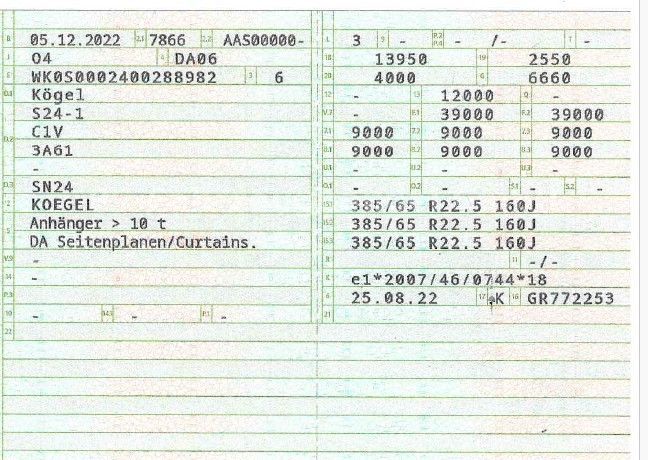 B 05.12.2022 2.1 7866 2.2 AAS00000-
J O4 4 DA06
E WK0S0002400288982 3 6
D.1 Kögel
S24-1
D.2 C1V
3A61
-
D.3 SN24
2 KOEGEL
5 Anhänger > 10 t
DA Seitenplanen/Curtains.
V.9 -
14 -
P.3
10 - 14.1 - P.1 -
22
L 3 9 - P.2 P.4 - /- T -
18 13950 19 2550
20 4000 G 6660
12 - 13 12000 Q -
V.7 - F.1 39000 F.2 39000
7.1 9000 7.2 9000 7.3 9000
8.1 9000 8.2 9000 8.3 9000
U.1 - U.2 - U.3 -
O.1 - O.2 - S.1 - S.2 -
15.1 385/65 R22.5 160J
15.2 385/65 R22.5 160J
15.3 385/65 R22.5 160J
R - 11 -/-
K e1*2007/46/0744*18
6 25.08.22 17 K 16 GR772253
21